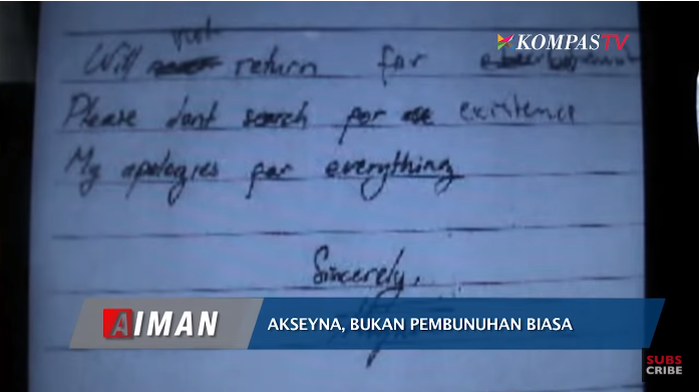 KOMPASTV
not
Will return for
Please dont search for existence
My apologies for everything
Sincerely,
AIMAN
AKSEYNA, BUKAN PEMBUNUHAN BIASA
SUBS
CRIBE